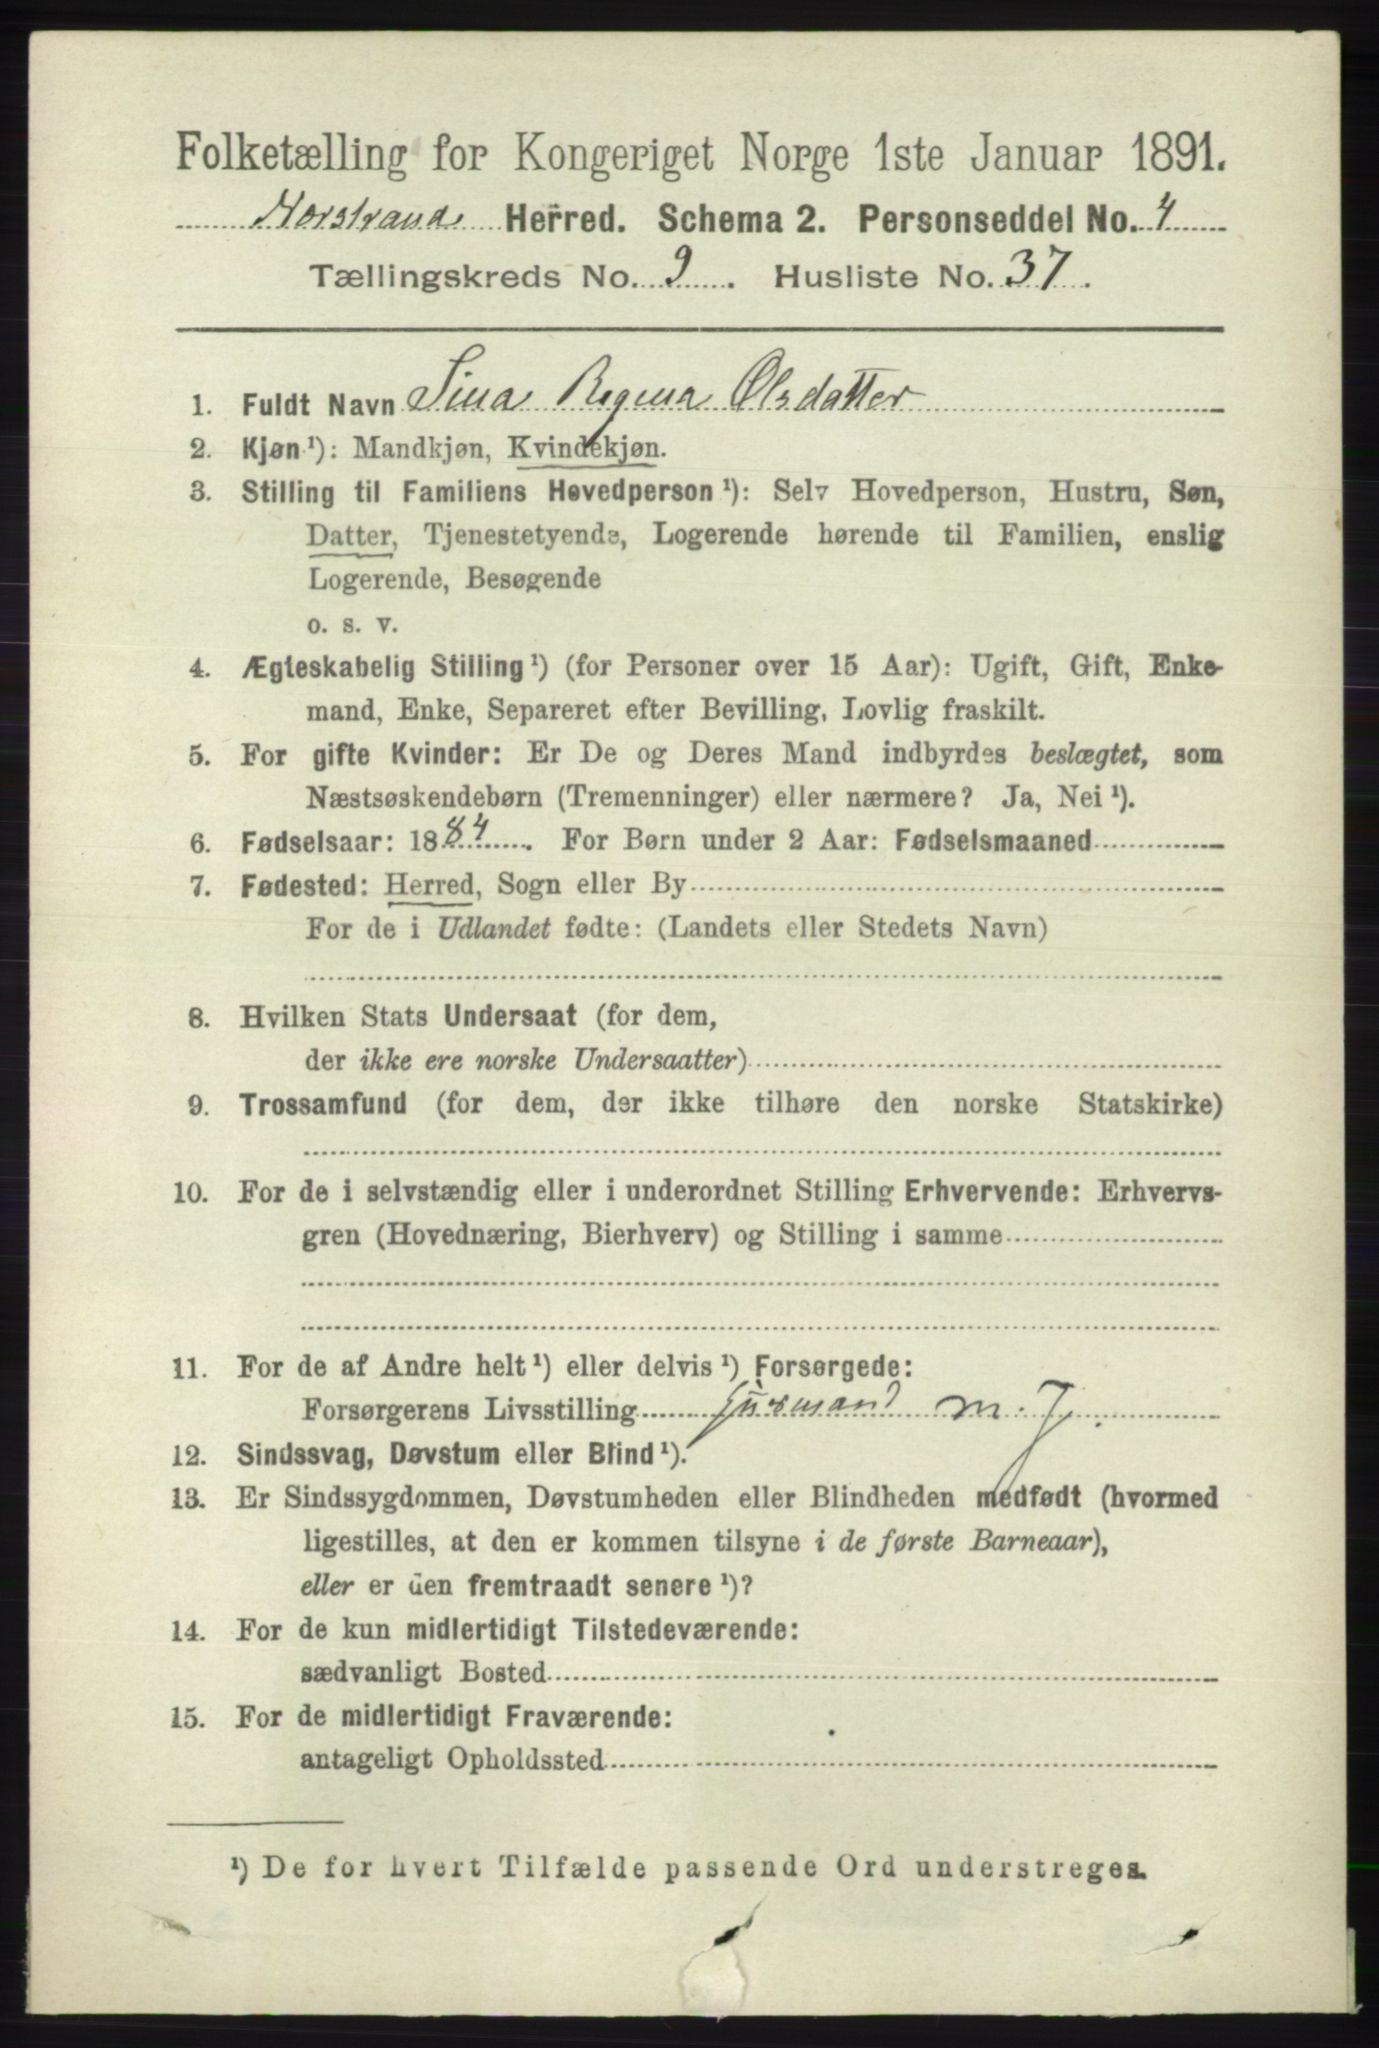 Folketælling for Kongeriget Norge 1ste Januar 1891.
Norstrand Herred. Schema 2. Personseddel No. 4
Tællingskreds No. 9. Husliste No. 37.
1. Fuldt Navn Sina Regina Olsdatter
2. Kjøn ¹): Mandkjøn, Kvindekjøn.
3. Stilling til Familiens Hovedperson ¹): Selv Hovedperson, Hustru, Søn,
Datter, Tjenestetyende, Logerende hørende til Familien, enslig
Logerende, Besøgende
o. s. v.
4. Ægteskabelig Stilling ¹) (for Personer over 15 Aar): Ugift, Gift, Enke-
mand, Enke, Separeret efter Bevilling, Lovlig fraskilt.
5. For gifte Kvinder: Er De og Deres Mand indbyrdes beslægtet, som
Næstsøskendebørn (Tremenninger) eller nærmere? Ja, Nei ¹).
6. Fødselsaar: 1884. For Børn under 2 Aar: Fødselsmaaned
7. Fødested: Herred, Sogn eller By
For de i Udlandet fødte: (Landets eller Stedets Navn)
8. Hvilken Stats Undersaat (for dem,
der ikke ere norske Undersaatter)
9. Trossamfund (for dem, der ikke tilhøre den norske Statskirke)
10. For de i selvstændig eller i underordnet Stilling Erhvervende: Erhvervs-
gren (Hovednæring, Bierhverv) og Stilling i samme
11. For de af Andre helt ¹) eller delvis ¹) Forsørgede:
Forsørgerens Livsstilling Húsmand m. J.
12. Sindssvag, Døvstum eller Blind ¹).
13. Er Sindssygdommen, Døvstumheden eller Blindheden medfødt (hvormed
ligestilles, at den er kommen tilsyne i de første Barneaar),
eller er den fremtraadt senere ¹)?
14. For de kun midlertidigt Tilstedeværende:
sædvanligt Bosted
15. For de midlertidigt Fraværende:
antageligt Opholdssted
¹) De for hvert Tilfælde passende Ord understreges.